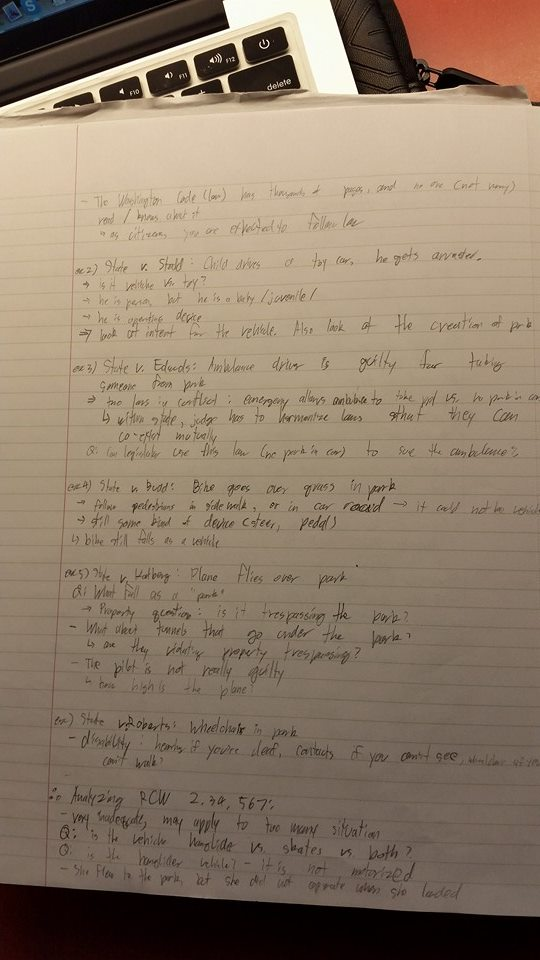 F10
F11
F12
delete
- The Washington Code (law) has thousands of pages, and no one (not many)
read / knows about it
↳ as citizens, you are expected to follow law
ex 2) State v. Stodd: Child drives a toy car, he gets arrested.
→ Is it vehicle vs. toy?
→ he is person, but he is a baby / juvenile /
→ he is operating device
⇒ look at intent for the vehicle. Also look at the creation of park
ex 3) State v. Edwards: Ambulance driver is guilty for taking
someone from park
⇒ two laws in conflict: emergency allows ambulance to take ppl vs. no park in car
↳ within state, judge has to harmonize laws so that they can
co-exist mutually
Q: Can legislator use this law (no park in car) to sue the ambulance?
ex 4) State v. Budd: Bike goes over grass in park
→ follow pedestrians in sidewalk, or in car road → it could not be vehicle
→ still some kind of device (steer, pedal)
↳ bike still falls as a vehicle
ex 5) State v. : Plane flies over park
Q: What fall as a "park"
→ Property question: is it trespassing the park?
- What about tunnels that go under the park?
↳ are they violating property trespassing?
- The pilot is not really guilty
↳ how high is the plane?
ex) State v. Roberts: Wheelchair in park
- disability: hearing if you're deaf, contacts if you can't see, wheelchair if you
can't walk?
∴ Analyzing RCW 2.34.567:
- very inadequate, may apply to too many situation
Q: is the vehicle hanglide vs. skates vs. both?
Q: is the hanglider vehicle? - it is not motorized
- She flew to the park, but she did not operate when she landed